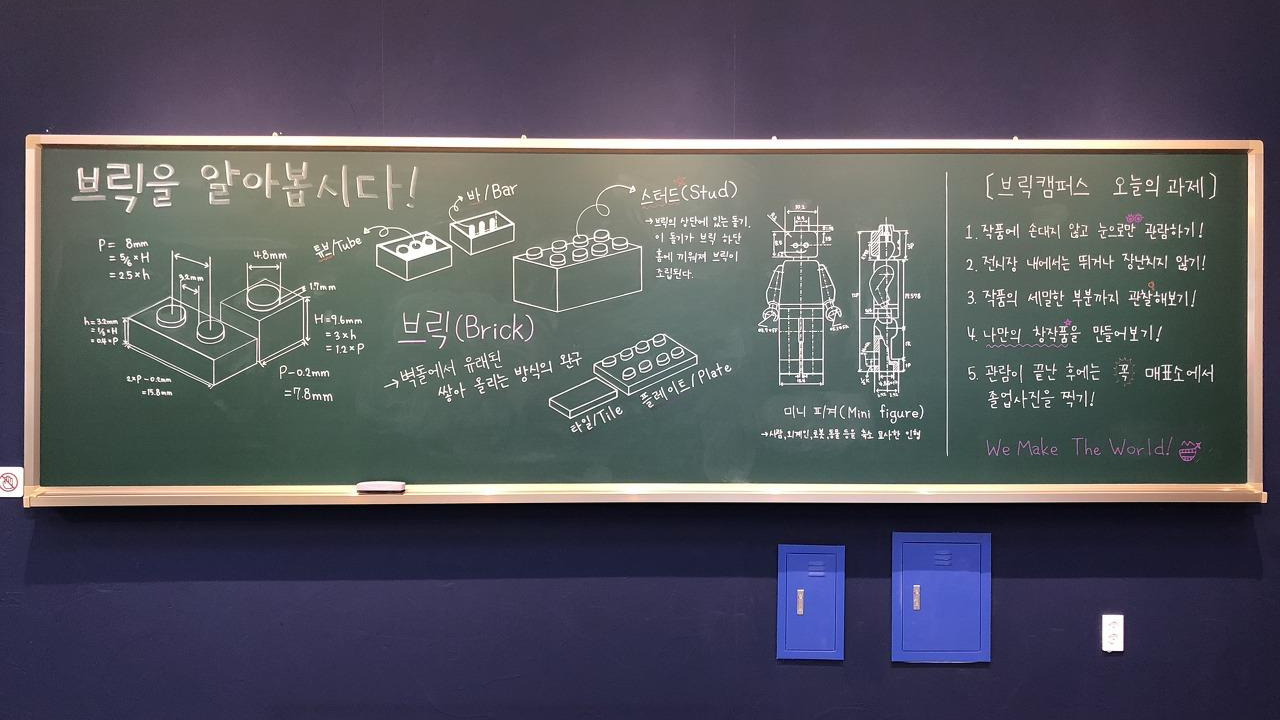 브릭을 알아봅시다!
P = 8mm
= 5/6 × H
= 2.5 × h
3.2mm
4.8mm
1.7mm
h = 3.2mm
= 1/3 × H
= 0.4 × P
H = 9.6mm
= 3 × h
= 1.2 × P
2 × P - 0.2mm
= 15.8mm
P - 0.2mm
= 7.8mm
튜브/Tube
바/Bar
스터드(Stud)
→브릭의 상단에 있는 돌기.
이 돌기가 브릭 하단
홈에 끼워져 브릭이
조립된다.
브릭(Brick)
→벽돌에서 유래된
쌓아 올리는 방식의 완구
타일/Tile
플레이트/Plate
미니 피겨(Mini figure)
→사람,외계인,로봇,동물 등을 축소 묘사한 인형
[브릭캠퍼스 오늘의 과제]
1. 작품에 손대지 않고 눈으로만 관람하기!
2. 전시장 내에서는 뛰거나 장난치지 않기!
3. 작품의 세밀한 부분까지 관찰해보기!
4. 나만의 창작품을 만들어보기!
5. 관람이 끝난 후에는 꼭 매표소에서
졸업사진을 찍기!
We Make The World!